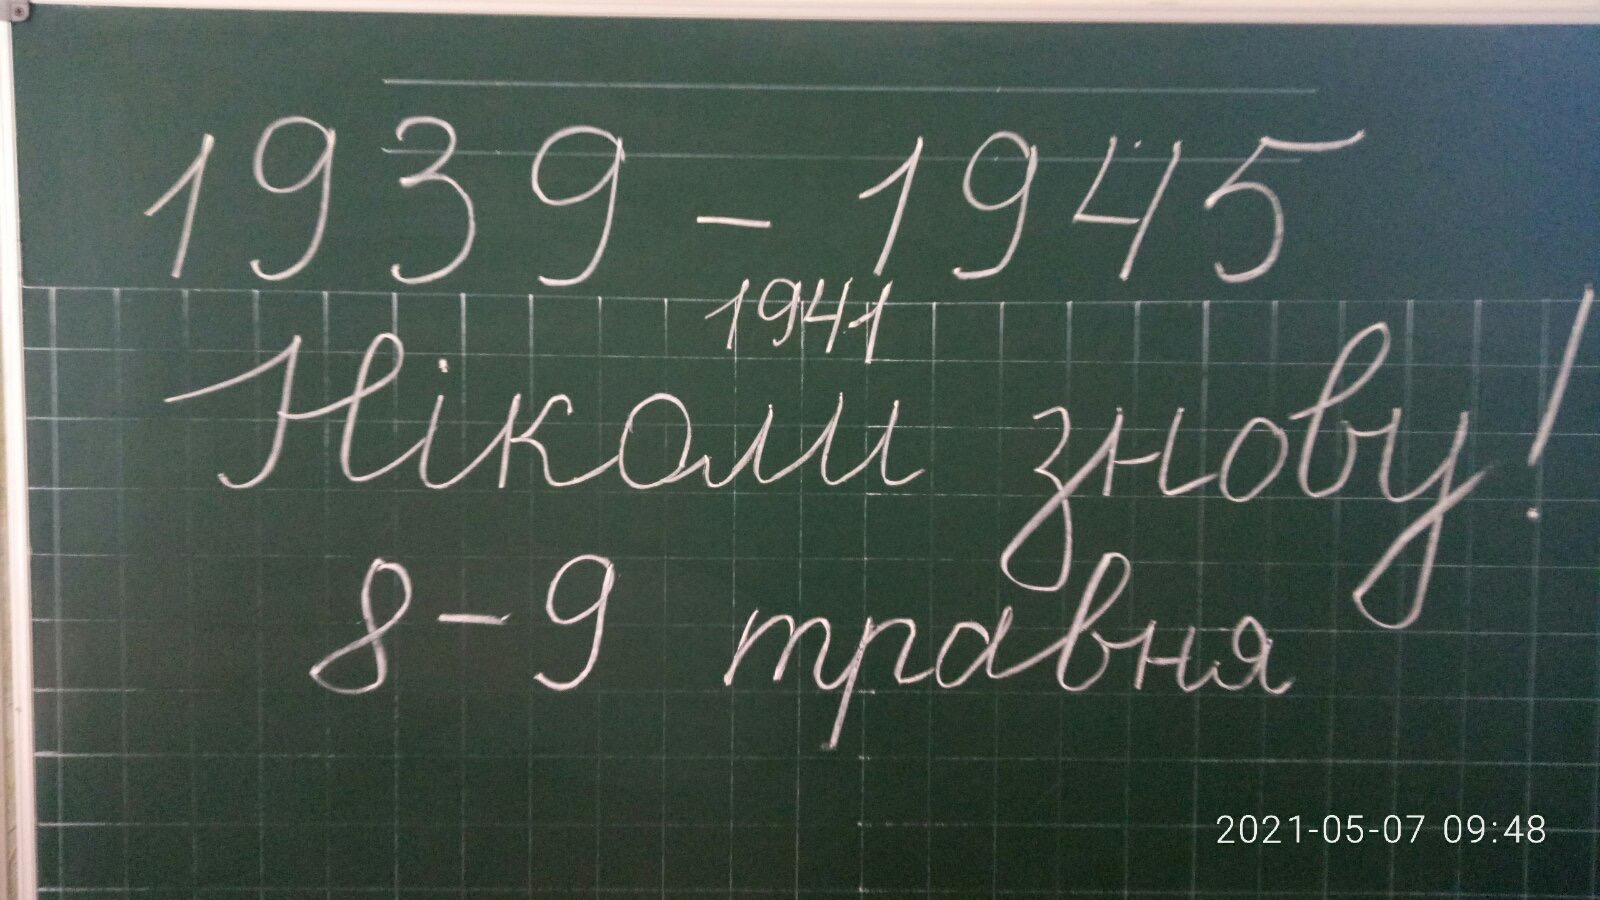 1939 - 1945
1941
Ніколи знову!
8-9 травня
2021-05-07 09:48